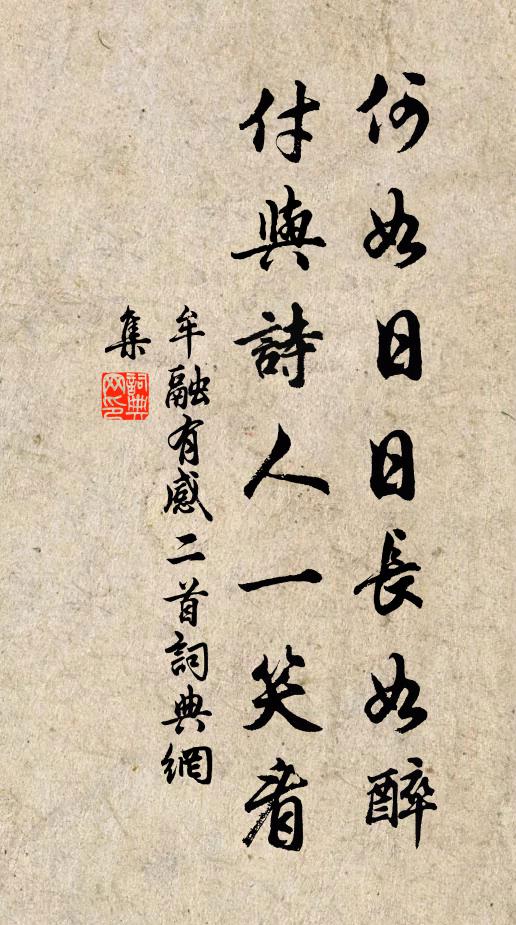 何如日日長如醉
付與詩人一笑看
牟融有感二首詞典網
集
詞典
网印